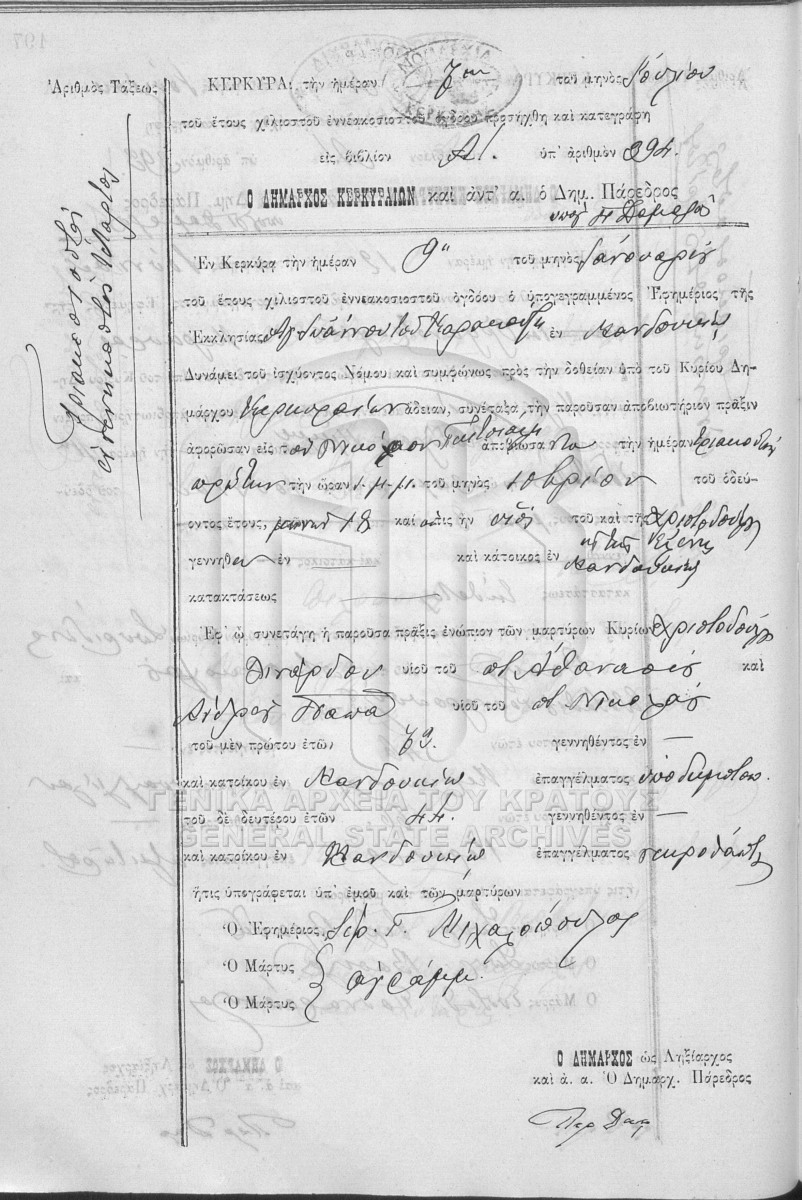 Ἀριθμὸς Τάξεως
Τριακοστοὶ
ἐννενηκοστὸς τέταρτος
ΚΕΡΚΥΡΑ, τὴν ἡμέραν 7ην τοῦ μηνὸς Ἰουλίου
τοῦ ἔτους χιλιοστοῦ ἐννεακοσιοστοῦ ὀγδόου προσήχθη καὶ κατεγράφη
εἰς βιβλίον Αʹ. ὑπ' ἀριθμὸν 394.
Ὁ ΔΗΜΑΡΧΟΣ ΚΕΡΚΥΡΑΙΩΝ καὶ ἀντ' α. ὁ Δημ. Πάρεδρος
Ἐν Κερκύρᾳ τὴν ἡμέραν 9ῃ τοῦ μηνὸς Ἰανουαρίου
τοῦ ἔτους χιλιοστοῦ ἐννεακοσιοστοῦ ὀγδόου ὁ ὑπογεγραμμένος Ἐφημέριος τῆς
Ἐκκλησίας Ἁγ. Ἰωάννου τοῦ ἐν Μανδουκίῳ
Δυνάμει τοῦ ἰσχύοντος Νόμου καὶ συμφώνως πρὸς τὴν δοθεῖσαν ὑπὸ τοῦ Κυρίου Δη-
μάρχου Κερκυραίων ἄδειαν, συνέταξα τὴν παροῦσαν ἀποβιωτήριον πρᾶξιν
ἀφορῶσαν εἰς τὸν Νικόλαον ἀποβιώσαντα τὴν ἡμέραν τριακοστὴν
πρώτην τὴν ὥραν τοῦ μηνὸς 10βρίου τοῦ ὁδεύ-
οντος ἔτους, μηνῶν 18 καὶ ὅστις ἦν υἱὸς τοῦ καὶ τῆς Χριστοδούλου
καὶ τῆς Ἑλένης
γεννηθεὶς ἐν καὶ κάτοικος ἐν Μανδουκίῳ
κατακτάσεως
Ἐφ' ᾧ συνετάγη ἡ παροῦσα πρᾶξις ἐνώπιον τῶν μαρτύρων Κυρίων Χριστοδούλου
Λινάρδου υἱοῦ τοῦ π. Ἀθανασίου καὶ
Ἀνδρέου Παπᾶ υἱοῦ τοῦ π. Νικολάου
τοῦ μὲν πρώτου ἐτῶν 72. γεννηθέντος ἐν —
καὶ κατοίκου ἐν Μανδουκίῳ ἐπαγγέλματος ὑποδηματοπ.
τοῦ δὲ δευτέρου ἐτῶν 44. γεννηθέντος ἐν —
καὶ κατοίκου ἐν Μανδουκίῳ ἐπαγγέλματος νεκροθάπτης
ἥτις ὑπογράφεται ὑπ' ἐμοῦ καὶ τῶν μαρτύρων
Ὁ Ἐφημέριος, Ἱερ. Γ. Μιχαλόπουλος
Ὁ Μάρτυς ἀγράμμ.
Ὁ Μάρτυς
Ὁ ΔΗΜΑΡΧΟΣ ὡς Ληξίαρχος
καὶ ἀ. α. Ὁ Δημαρχ. Πάρεδρος
ΓΕΝΙΚΑ ΑΡΧΕΙΑ ΤΟΥ ΚΡΑΤΟΥΣ
GENERAL STATE ARCHIVES